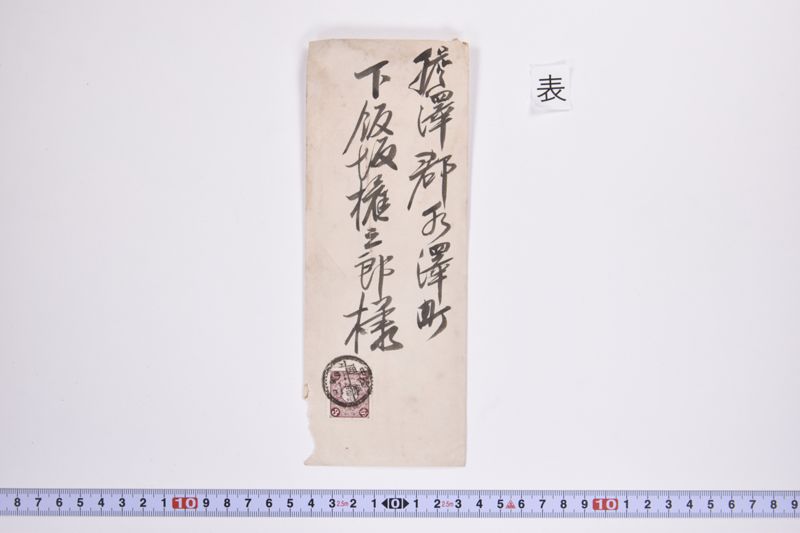 膽澤郡水澤町
下飯坂権三郎様
表
8 7 6 5 4 3 2 1 10 9 8 7 6 5 4 3 2.5m 2 1 0 1 2 2.5m 3 4 5 6 7 8 9 10 1 2 3 4 5 6 7 8 9